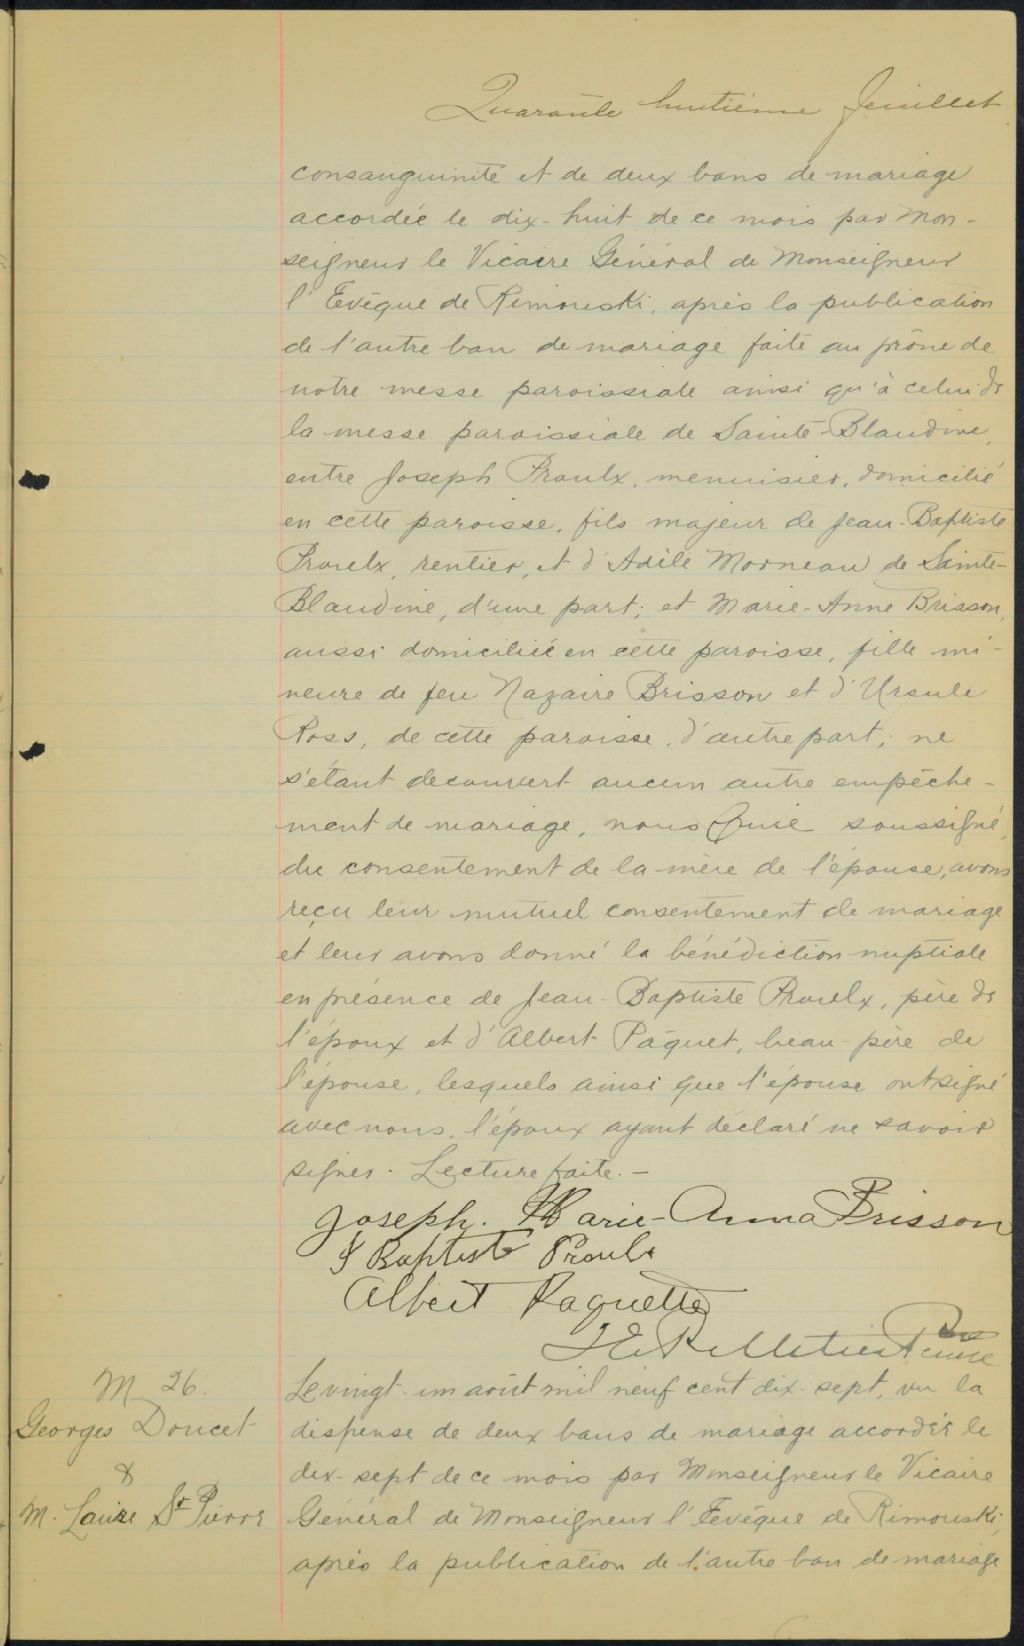 Quarante huitième feuillet
consanguinité et de deux bans de mariage
accordée le dix-huit de ce mois par Mon-
seigneur le Vicaire Général de Monseigneur
l'Evêque de Rimouski, après la publication
de l'autre ban de mariage faite au prône de
notre messe paroissiale ainsi qu'à celui de
la messe paroissiale de Sainte-Blandine,
entre Joseph Proulx, menuisier, domicilié
en cette paroisse, fils majeur de Jean-Baptiste
Proulx, rentier, et d'Adèle Morneau de Sainte-
Blandine, d'une part; et Marie-Anne Brisson,
aussi domiciliée en cette paroisse, fille mi-
neure de feu Nazaire Brisson et d'Ursule
Ross, de cette paroisse, d'autre part; ne
s'étant decouvert aucun autre empêche-
ment de mariage, nous Curé soussigné,
du consentement de la mère de l'épouse, avons
reçu leur mutuel consentement de mariage
et leur avons donné la bénédiction nuptiale
en présence de Jean-Baptiste Proulx, père de
l'époux et d'Albert Pâquet, beau-père de
l'épouse, lesquels ainsi que l'épouse ont signé
avec nous, l'époux ayant déclaré ne savoir
signer. Lecture faite.-
Joseph. Marie-Anna Brisson
J Baptiste Proulx
Albert Paquette
J E Pelletier Ptre
Curé
M 26.
Georges Doucet
&
M. Laure St Pierre
Le vingt-un août mil neuf cent dix-sept, vu la
dispense de deux bans de mariage accordée le
dix-sept de ce mois par Monseigneur le Vicaire
Général de Monseigneur l'Evêque de Rimouski,
après la publication de l'autre ban de mariage